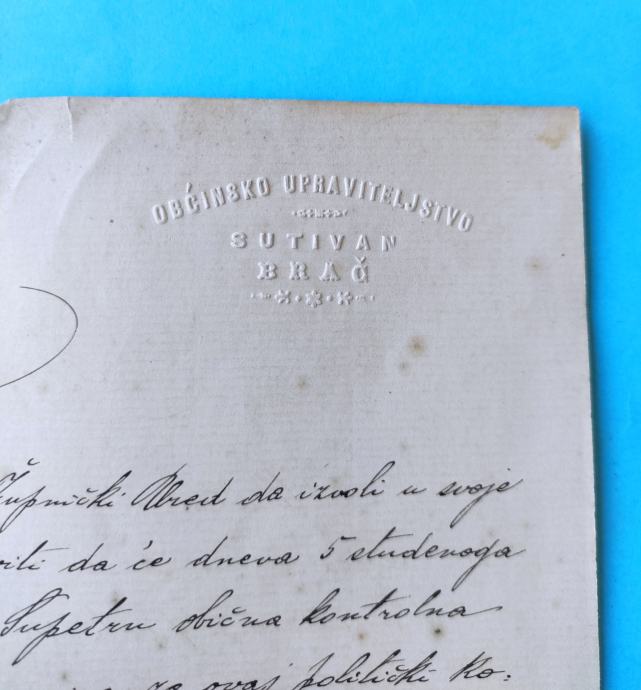 OBĆINSKO UPRAVITELJSTVO
SUTIVAN
BRAČ
Župnički Ured da izvoli u svoje
viti da će dneva 5 studenoga
Supetru obična kontrolna
za ovaj politički ko: